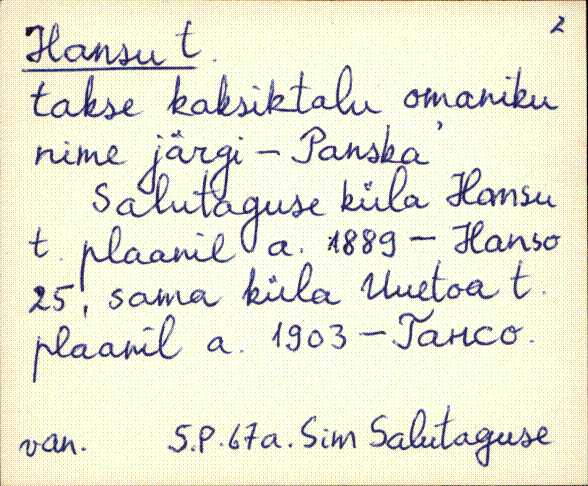 2
Hansu t.
takse kaksiktalu omaniku
nime järgi – Panska'
Salutaguse küla Hansu
t. plaanil a. 1889 – Hanso
25, sama küla Uuetoa t.
plaanil a. 1903 – Гансо.
van. S.P. 67a. Sim Salutaguse